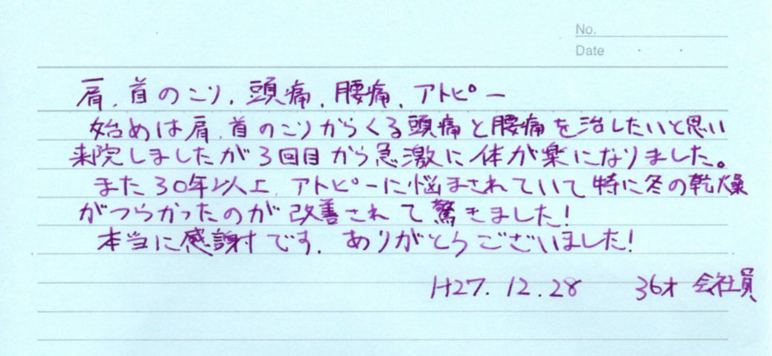 No.
Date ・ ・
肩、首のこり、頭痛、腰痛、アトピー
始めは肩、首のこりからくる頭痛と腰痛を治したいと思い
来院しましたが3回目から急激に体が楽になりました。
また30年以上、アトピーに悩まされていて特に冬の乾燥
がつらかったのが改善されて驚きました!
本当に感謝です、ありがとうございました!
H27.12.28 36才 会社員